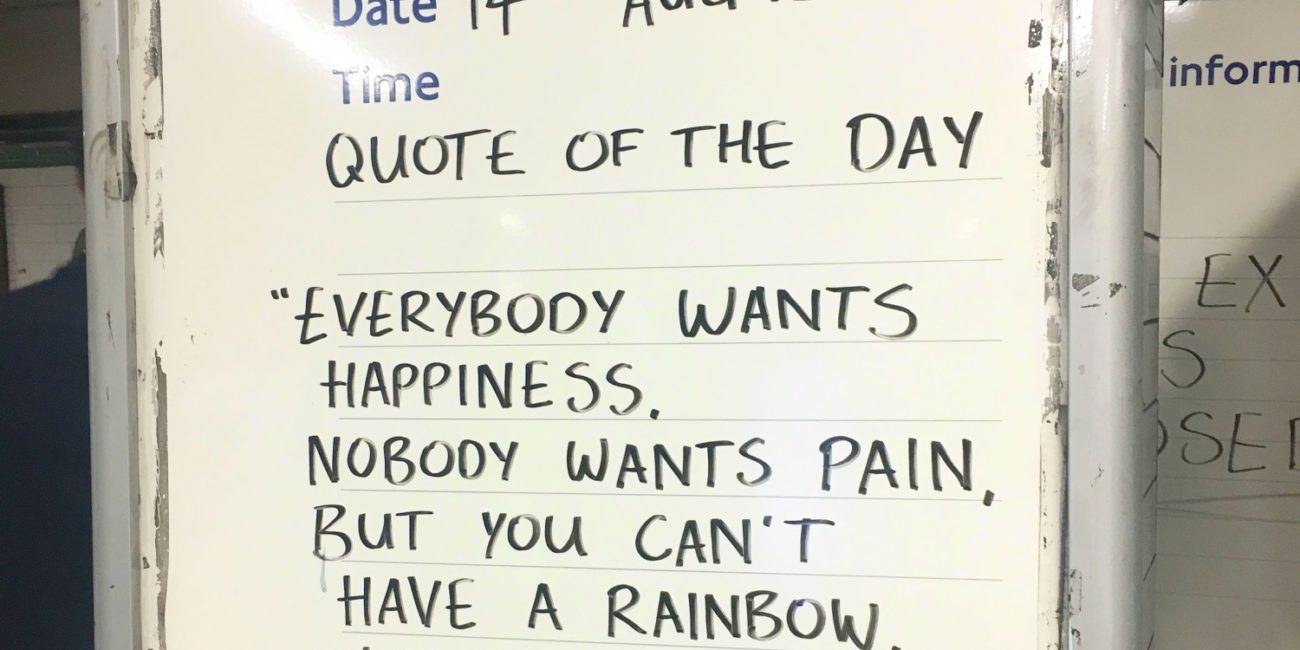 Date 14
Time
QUOTE OF THE DAY
"EVERYBODY WANTS
HAPPINESS.
NOBODY WANTS PAIN,
BUT YOU CAN'T
HAVE A RAINBOW,
inform
EX
S
OSED